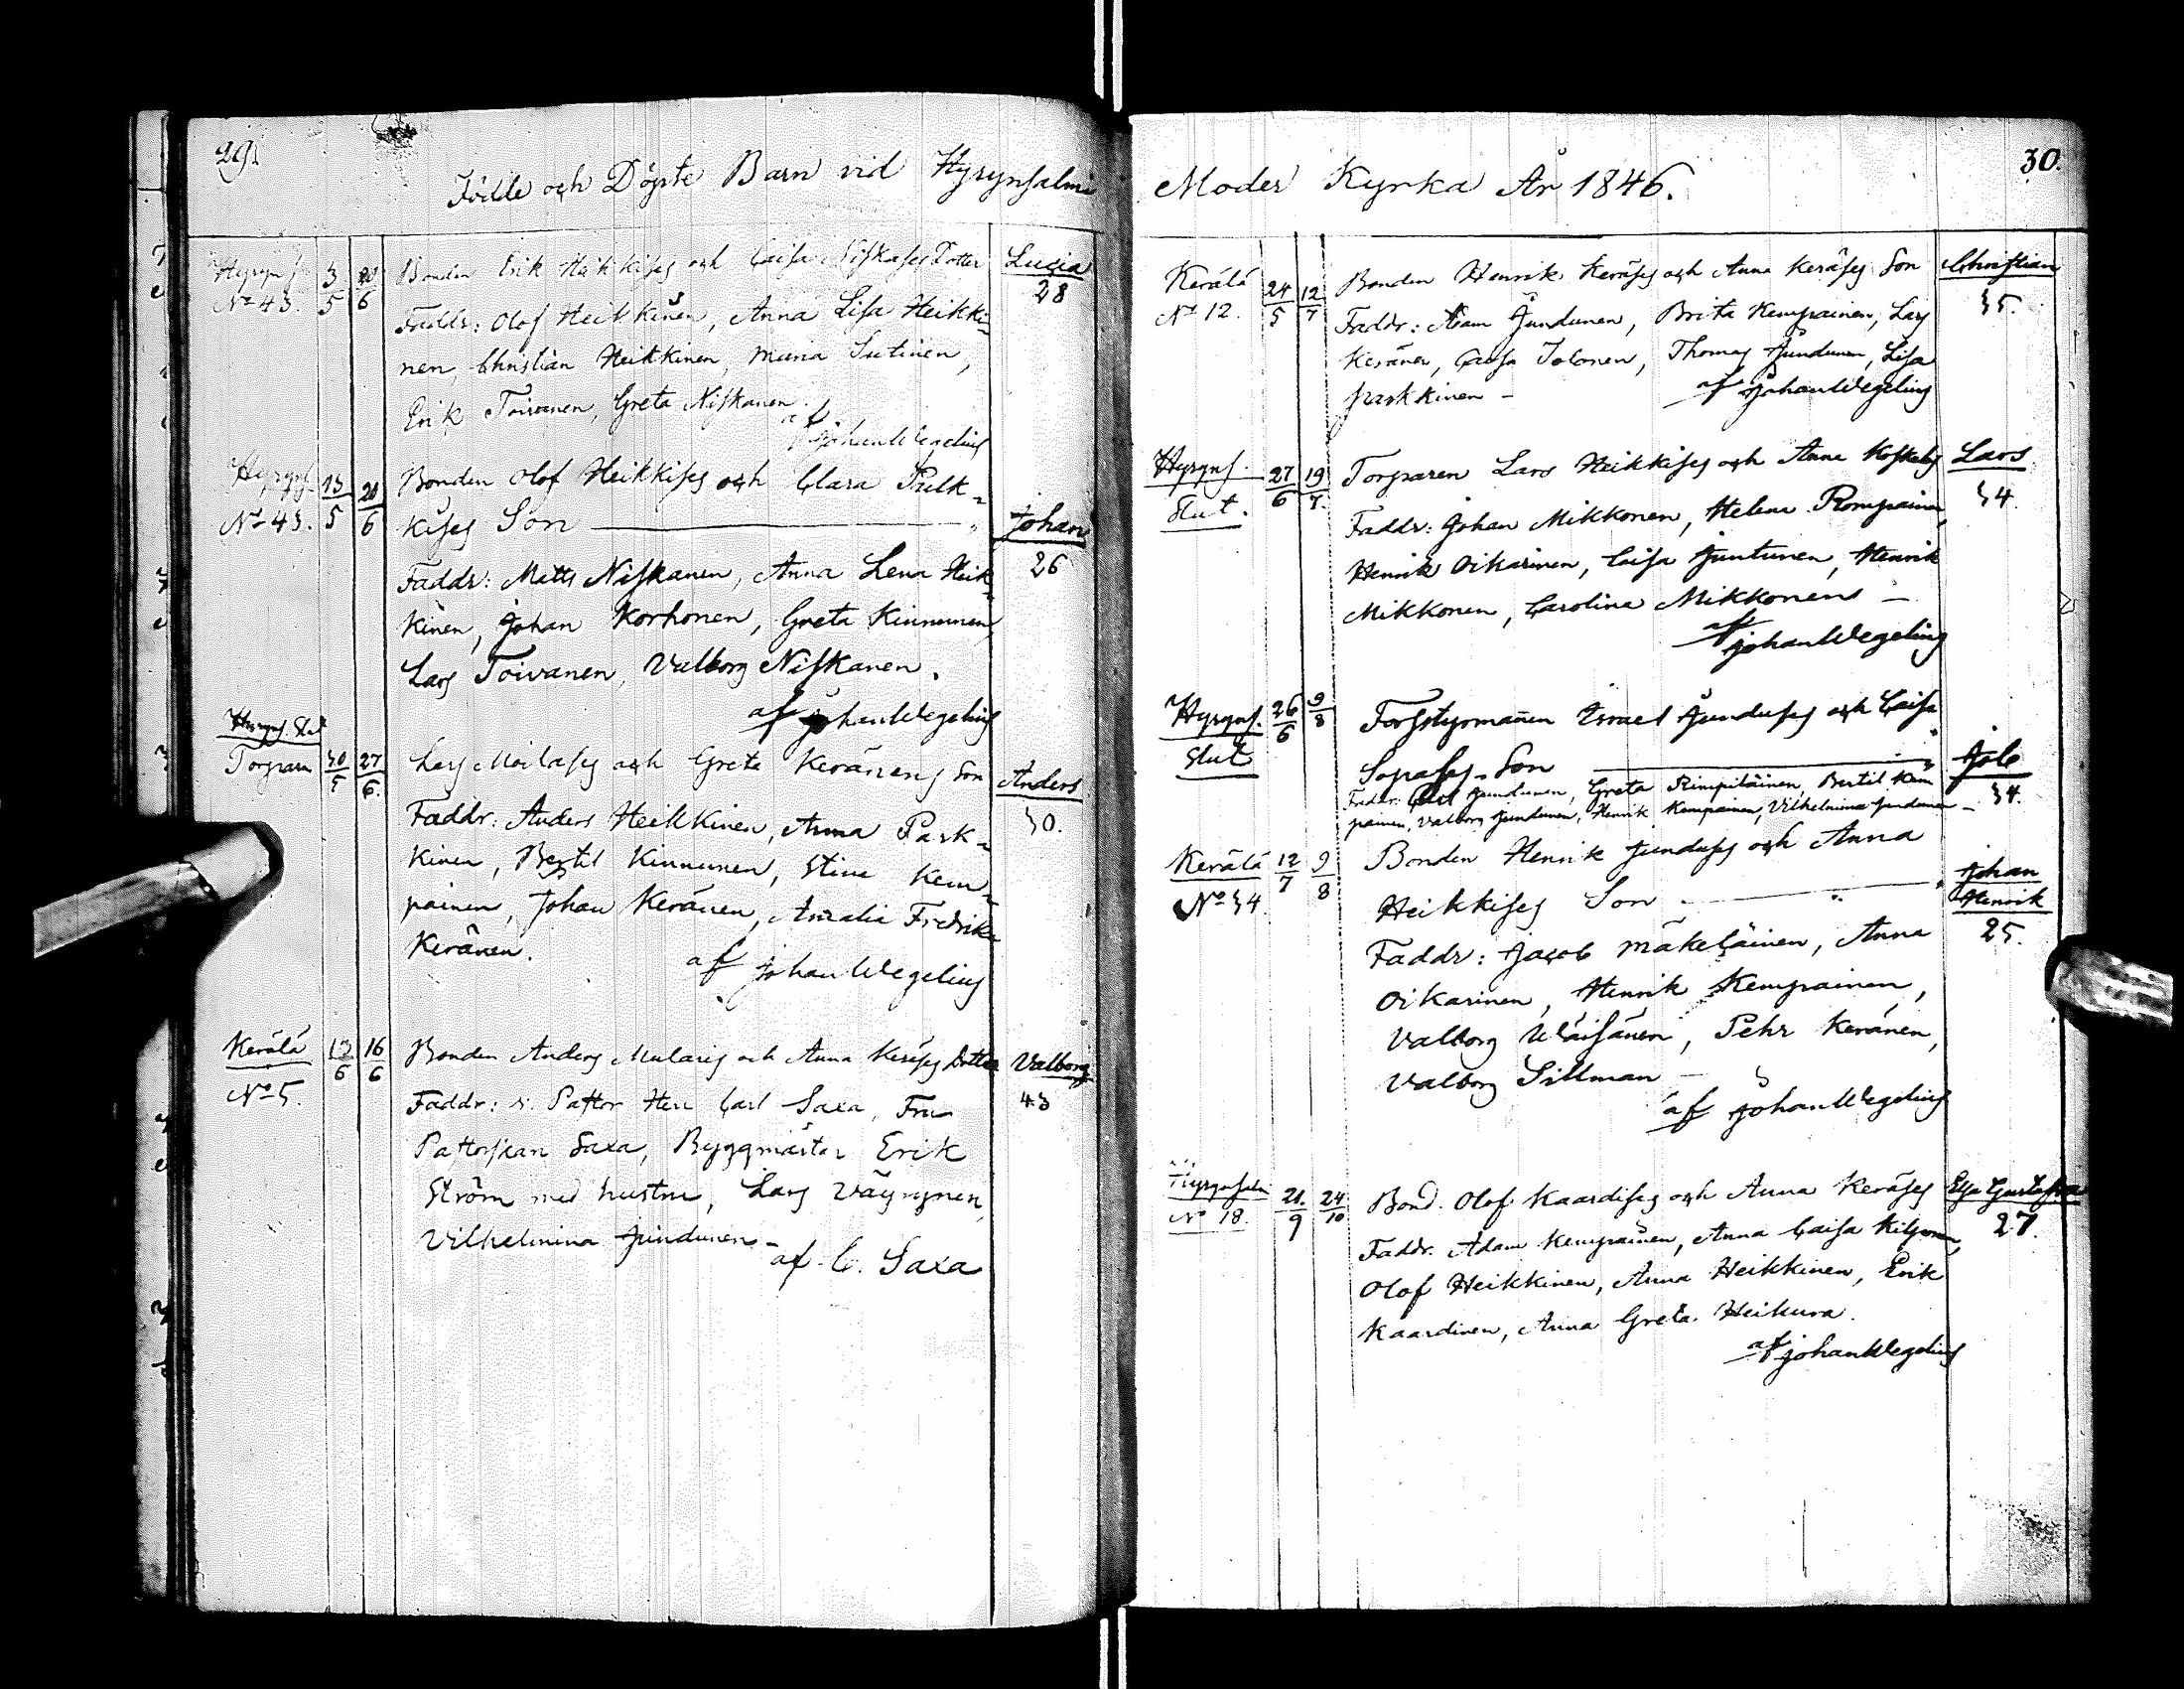 29.
Födde och Döpte Barn vid Hyrynsalmi
Hyryns. 3/5 20/6 Bonden Erik Heikkises och Caisa Niskases Dotter Lucia
No 43. 28
Faddr: Olof Heikkinen, Anna Lisa Heikki-
nen, Christian Heikkinen, Maria Sutinen,
Erik Toivanen, Greta Niskanen.
af Johan Wegelius
Hyryns. 13/5 20/6 Bonden Olof Heikkises och Clara Pulk-
No 43. kises Son Johan
26
Faddr: Matts Niskanen, Anna Lena Heik-
kinen, Johan Korhonen, Greta Kinnunen,
Lars Toivanen, Valborg Niskanen.
af Johan Wegelius
Hyryns. Slut
Torparn 30/5 27/6. Lars Moilases och Greta Keränens Son Anders
30.
Faddr: Anders Heikkinen, Anna Park-
kinen, Bertil Kinnunen, Stina Kem-
painen, Johan Keränen, Amalia Fredrika
Keränen.
af Johan Wegelius
Kerälä 12/6 16/6 Bonden Anders Mularis och Anna Keräses Dotter Valborg
No 5. 43
Faddr: v. Pastor Herr Carl Saxa, Fru
Pastorskan Saxa, Byggmästar Erik
Ström med hustru, Lars Väyrynen,
Vilhelmina Jundunen
af C. Saxa
30.
Moder Kyrka År 1846.
Kerälä 24/5 12/7 Bonden Henrik Keräses och Anna Keräses Son Christian
No 12. 35.
Faddr: Adam Jundunen, Brita Kempainen, Lars
Keränen, Caisa Tolonen, Thomas Jundunen, Lisa
Parkkinen
af Johan Wegelius
Hyryns. 27/6 19/7. Torparen Lars Heikkises och Anna Lars
Slut. 34.
Faddr: Johan Mikkonen, Helena Rompainen,
Henrik Oikarinen, Caisa Juntunen, Henrik
Mikkonen, Carolina Mikkonens
af Johan Wegelius
Hyryns. 26/6 9/8 Forsstyrmannen Israel Junduses och Caisa
Slut Son Job
34.
Faddr: Jundunen, Greta Rimpiläinen, Bertil Kem-
painen, Valborg Jundunen, Henrik Kempainen, Vilhelmina Jundunen
Kerälä 12/7 9/8 Bonden Henrik Junduses och Anna
No 34. Heikkises Son Johan
Henrik
25.
Faddr: Jacob Mäkeläinen, Anna
Oikarinen, Henrik Kempainen,
Valborg Väisänen, Pehr Keränen,
Valborg Sillman
af Johan Wegelius
Hyrynsalmi 21./9 24/10 Bond. Olof Kaardises och Anna Keräses Elsa Gustafva
No 18. 27.
Faddr. Adam Kempainen, Anna Caisa Kilponen,
Olof Heikkinen, Anna Heikkinen, Erik
Kaardinen, Anna Greta Heikura.
af Johan Wegelius